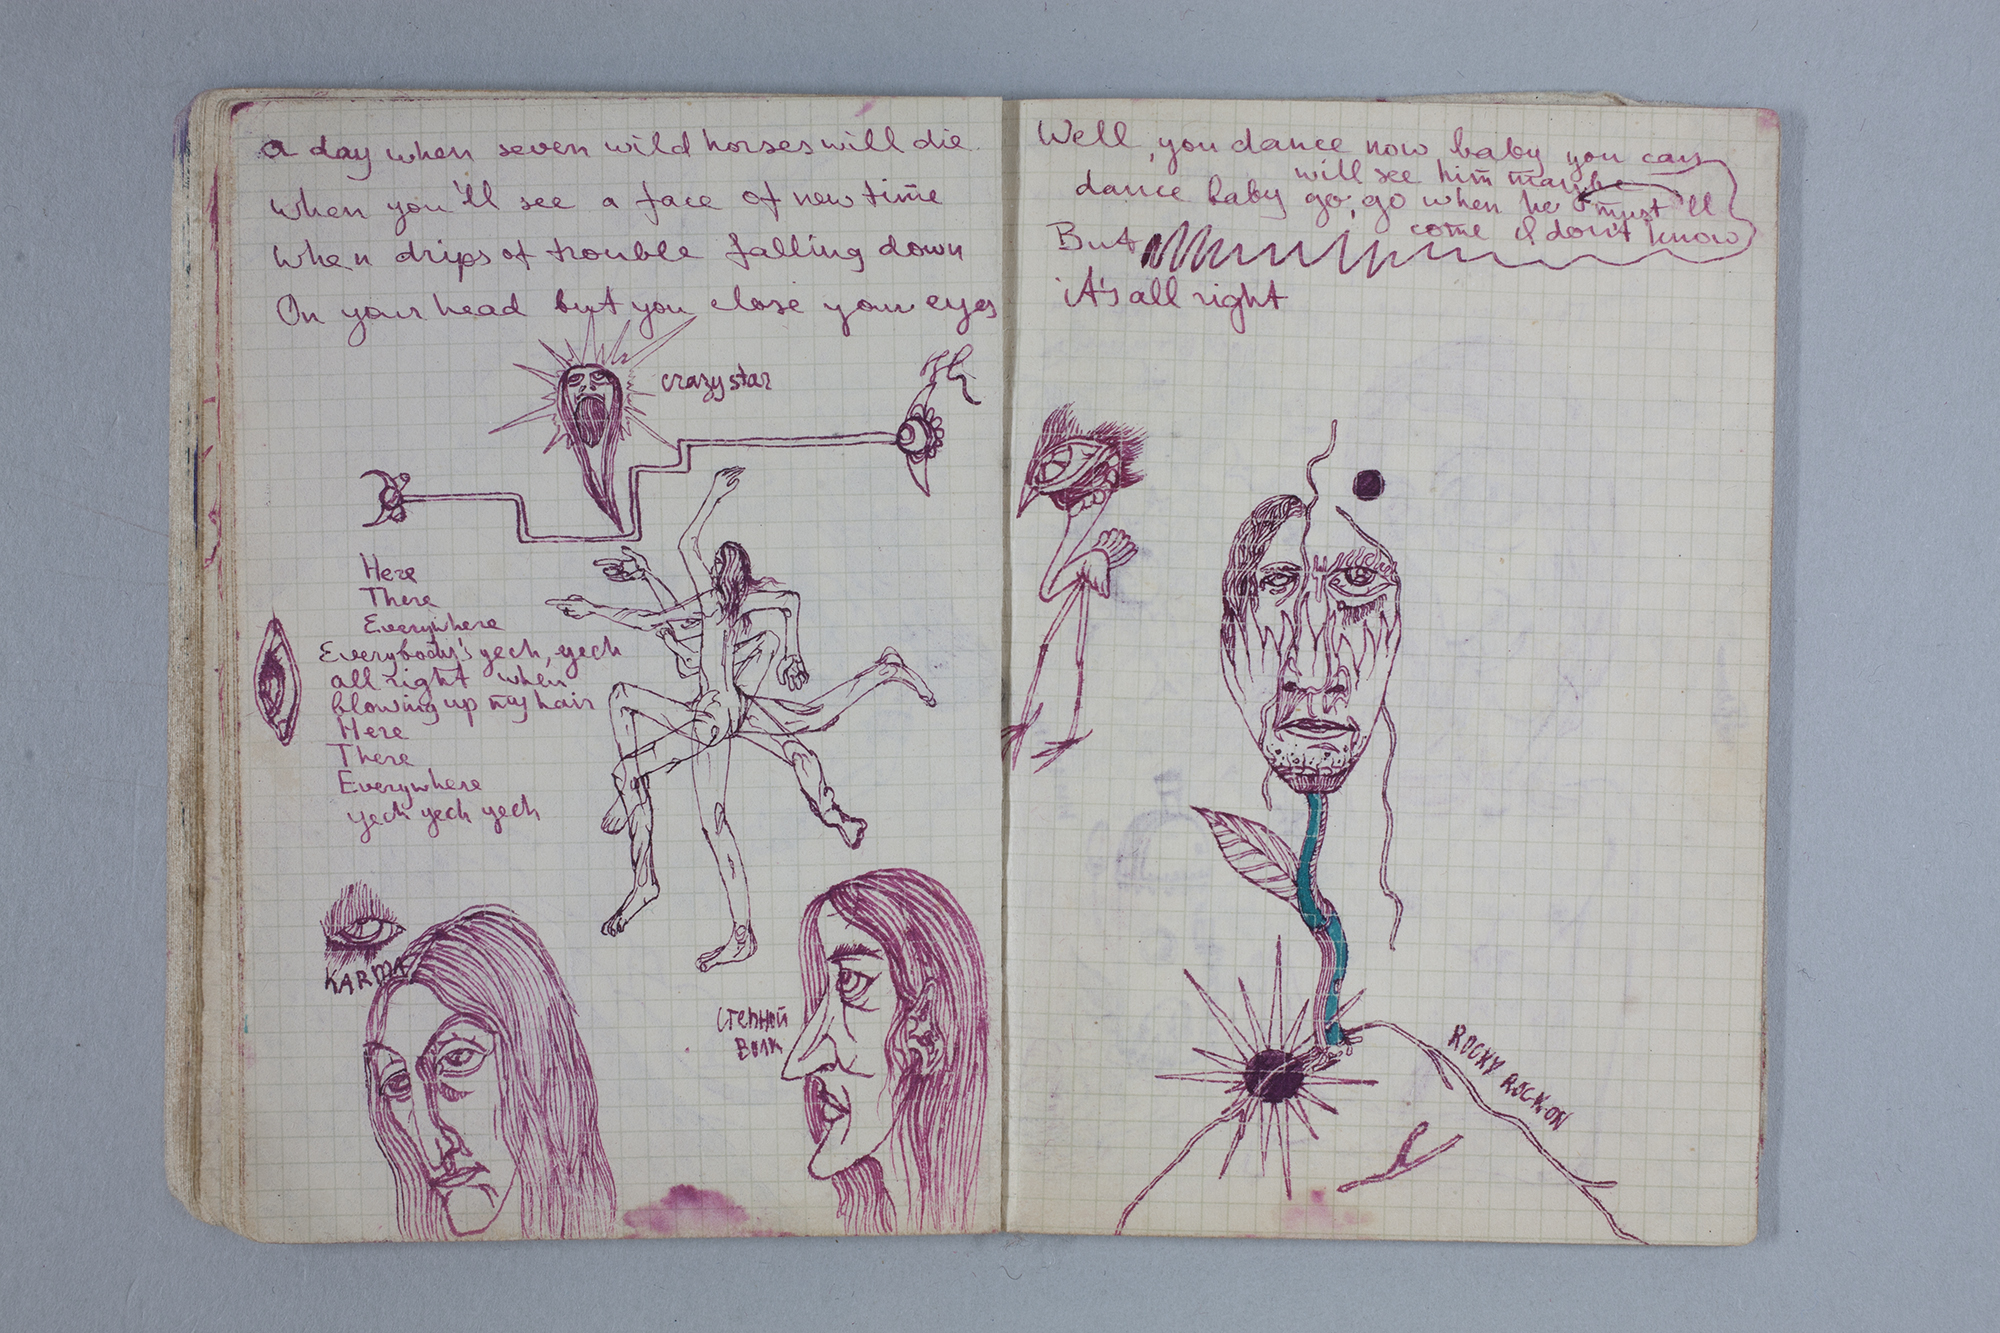 a day when seven wild horses will die
when you'll see a face of new time
when drips of trouble falling down
On your head but you close your eyes
crazy star
Here
There
Everywhere
Everybody's yech, yech
all right when
blowing up my hair
Here
There
Everywhere
yech yech yech
KARMA
СТЕПНОЙ
ВОЛК
Well, you dance now baby you can
will see him maybe
dance baby go, go when he must 'll
come I don't know
But
it's all right
ROCKY ROCK-ON